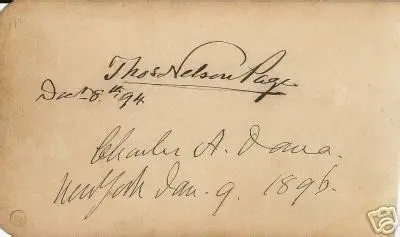 Thos Nelson Page.
Dec. 8th, 94.
Charles A. Dana.
New York Jan. 9. 1896.
ebY